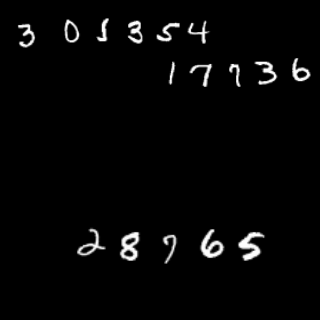 3 0 1 3 5 4
1 7 7 3 6
2 8 7 6 5